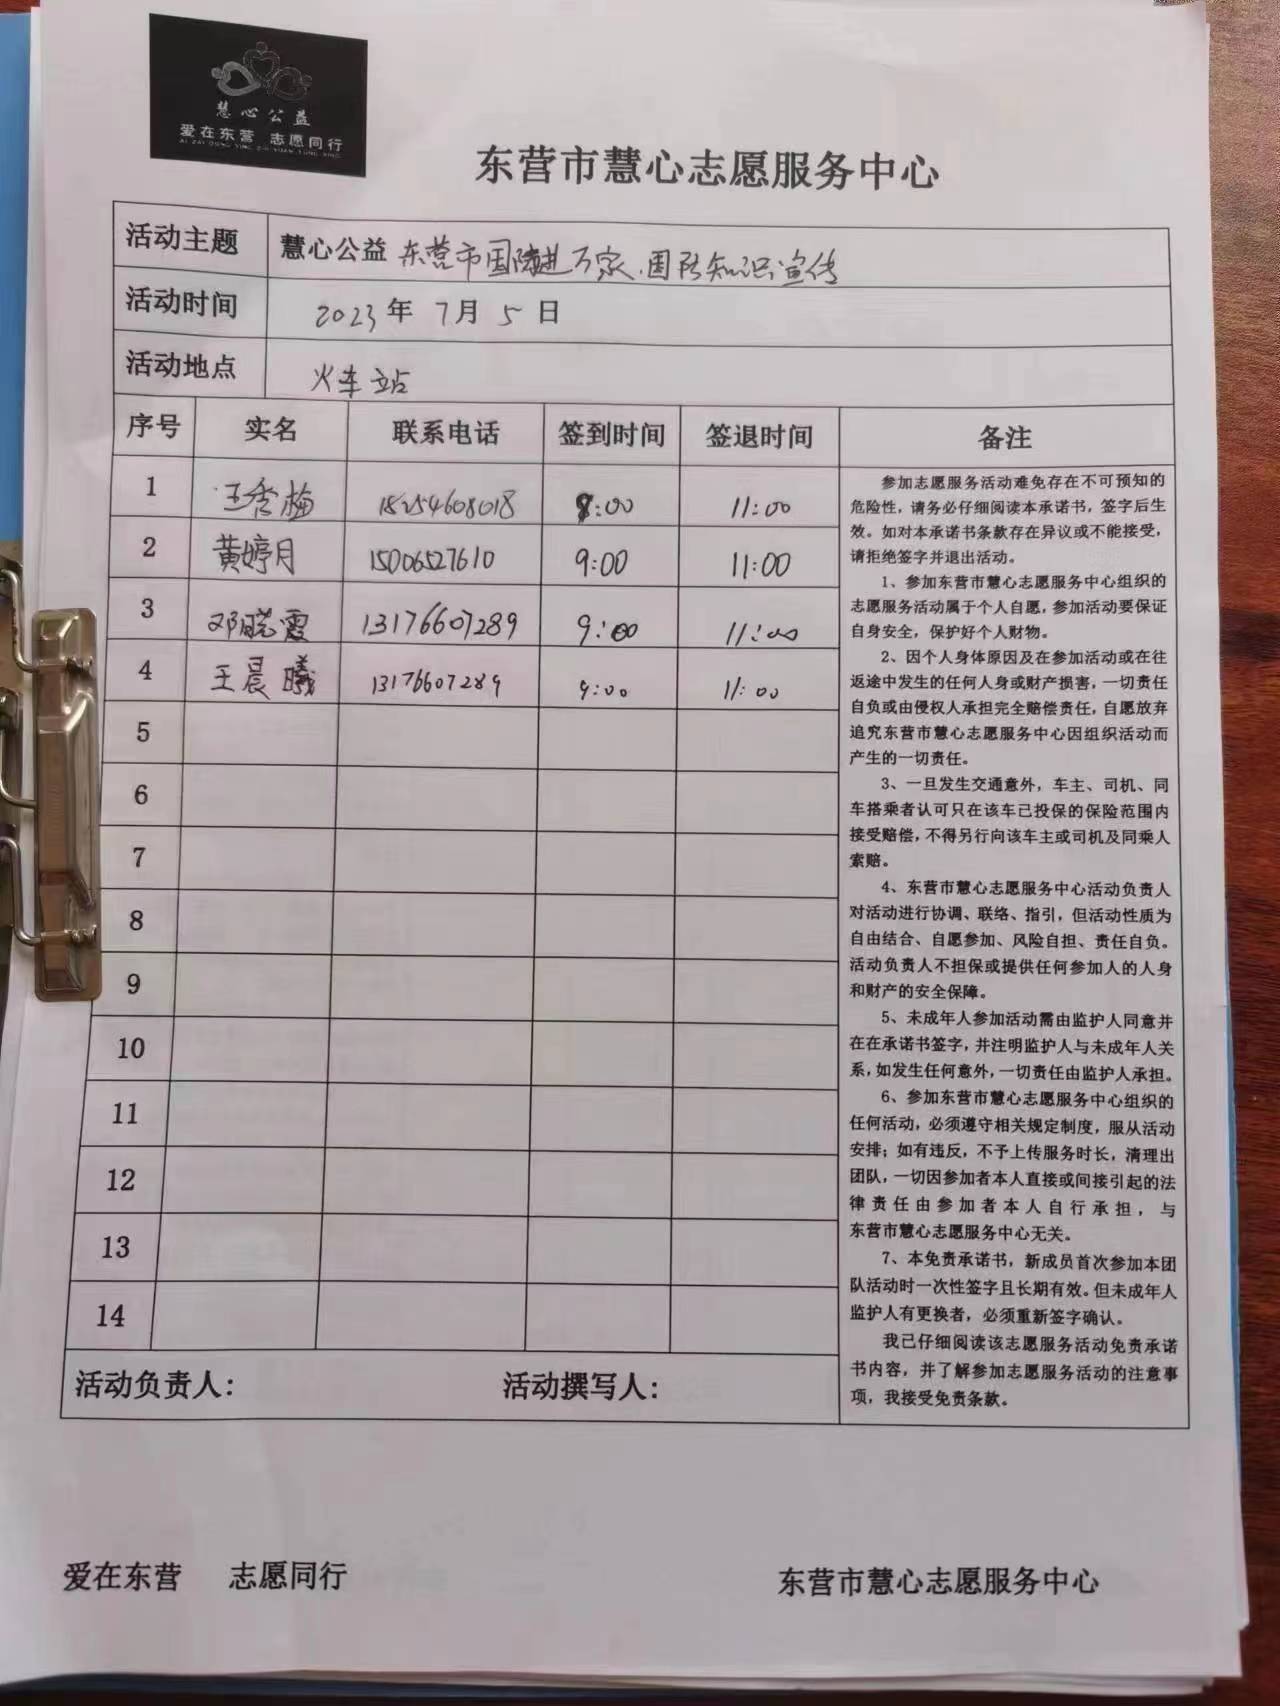 慧心公益
爱在东营 志愿同行
AI ZAI DONG YING ZHI YUAN TONG XING
东营市慧心志愿服务中心
活动主题 慧心公益 东营市国防进万家、国防知识宣传
活动时间 2023年 7月 5日
活动地点 火车站
序号 实名 联系电话 签到时间 签退时间 备注
1 王秀梅 15254608018 8:00 11:00
2 黄婷月 15006527610 9:00 11:00
3 邓晓霞 13176607289 9:00 11:00
4 王晨曦 13176607289 9:00 11:00
5
6
7
8
9
10
11
12
13
14
参加志愿服务活动难免存在不可预知的
危险性，请务必仔细阅读本承诺书，签字后生
效。如对本承诺书条款存在异议或不能接受，
请拒绝签字并退出活动。
1、参加东营市慧心志愿服务中心组织的
志愿服务活动属于个人自愿，参加活动要保证
自身安全，保护好个人财物。
2、因个人身体原因及在参加活动或在往
返途中发生的任何人身或财产损害，一切责任
自负或由侵权人承担完全赔偿责任，自愿放弃
追究东营市慧心志愿服务中心因组织活动而
产生的一切责任。
3、一旦发生交通意外，车主、司机、同
车搭乘者认可只在该车已投保的保险范围内
接受赔偿，不得另行向该车主或司机及同乘人
索赔。
4、东营市慧心志愿服务中心活动负责人
对活动进行协调、联络、指引，但活动性质为
自由结合、自愿参加、风险自担、责任自负。
活动负责人不担保或提供任何参加人的人身
和财产的安全保障。
5、未成年人参加活动需由监护人同意并
在在承诺书签字，并注明监护人与未成年人关
系，如发生任何意外，一切责任由监护人承担。
6、参加东营市慧心志愿服务中心组织的
任何活动，必须遵守相关规定制度，服从活动
安排；如有违反，不予上传服务时长，清理出
团队，一切因参加者本人直接或间接引起的法
律责任由参加者本人自行承担，与
东营市慧心志愿服务中心无关。
7、本免责承诺书，新成员首次参加本团
队活动时一次性签字且长期有效。但未成年人
监护人有更换者，必须重新签字确认。
我已仔细阅读该志愿服务活动免责承诺
书内容，并了解参加志愿服务活动的注意事
项，我接受免责条款。
活动负责人： 活动撰写人：
爱在东营 志愿同行 东营市慧心志愿服务中心